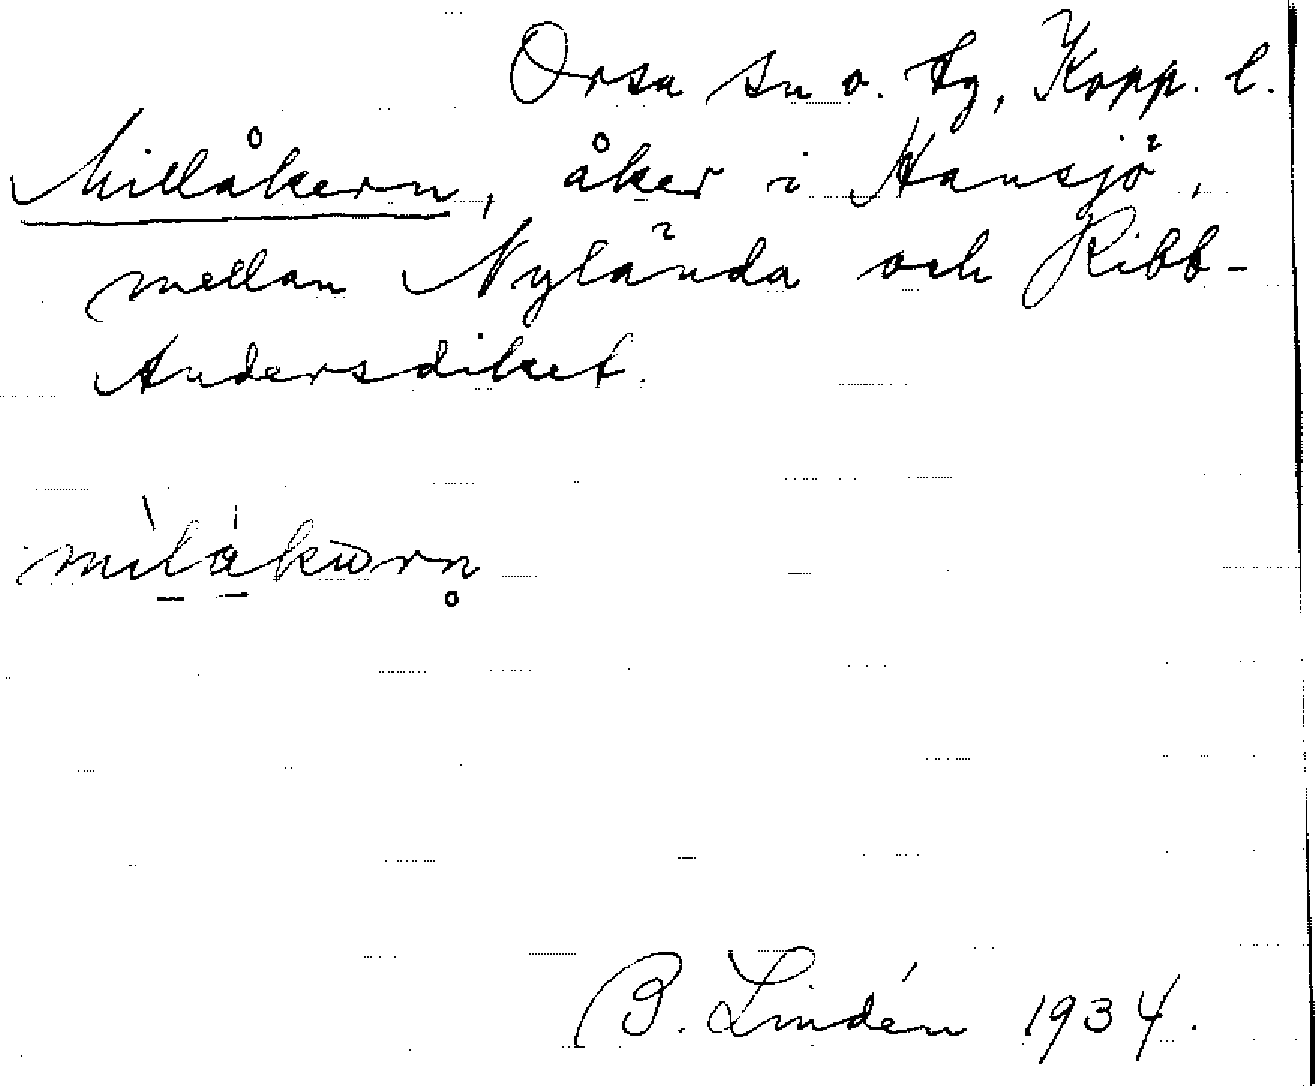 Orsa sn o. tg, Kopp. l.
Millåkern, åker i Hansjö,
mellan Nylända och Ribb-
Andersdiket.
B. Lindén 1934.